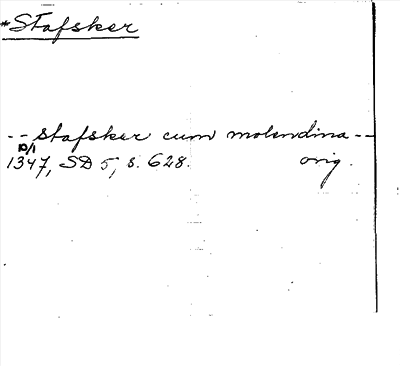 *Stafsker
-- stafsker cum molendina --
10/1
1347, SD 5, s. 628. orig.